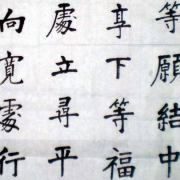 等願結中
享下等福
處立尋平
向寬處行